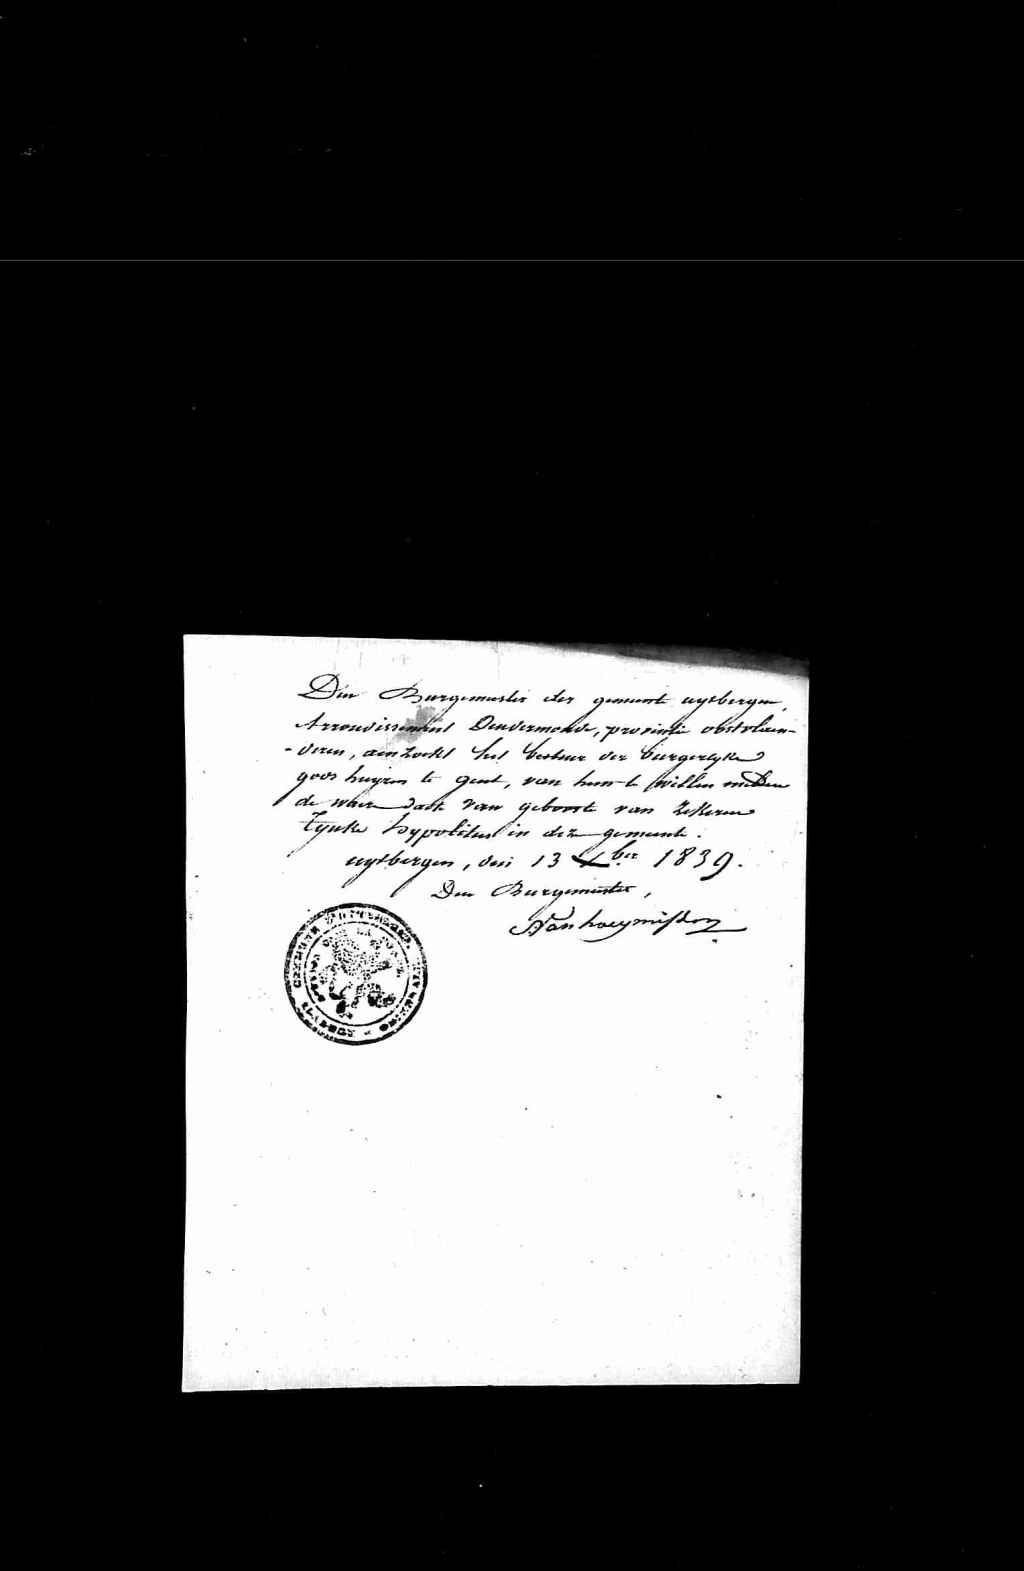 Den Burgemeester der gemeente uytbergen,
Arrondissement Dendermonde, provintie oostvlaen-
-deren, aenzoekt het bestuer der burgerlyke
gooshuyzen te gent, van hun te willen melden
de waer van geboorte van zekeren
Tynke hypolitus in deze gemeente.
uytbergen, den 13 Xber 1839.
Den Burgemeester,